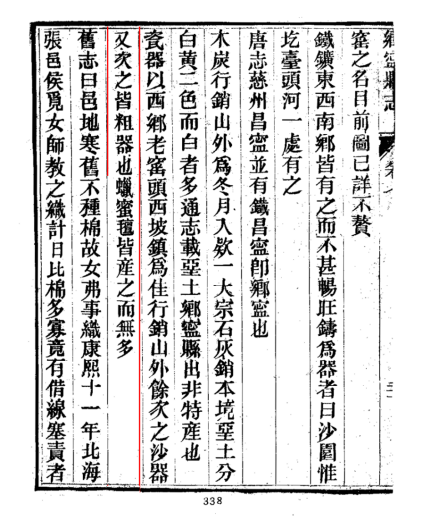 鄉寧縣志 卷七
窰之名目前圖已詳不贅
鐵鑛東西南鄉皆有之而不甚暢旺鑄爲器者曰沙圍惟
圪臺頭河一處有之
唐志慈州昌寧並有鐵昌寧卽鄉寧也
木炭行銷山外爲冬月入欵一大宗石灰銷本境堊土分
白黃二色而白者多通志載堊土鄉寧縣出非特產也
瓷器以西鄉老窰頭西坡鎭爲佳行銷山外餘次之沙器
又次之皆粗器也蠟蜜氊皆產之而無多
舊志曰邑地寒舊不種棉故女弗事織康熙十一年北海
張邑侯覓女師教之織計日比棉多寡竟有借線塞責者
338